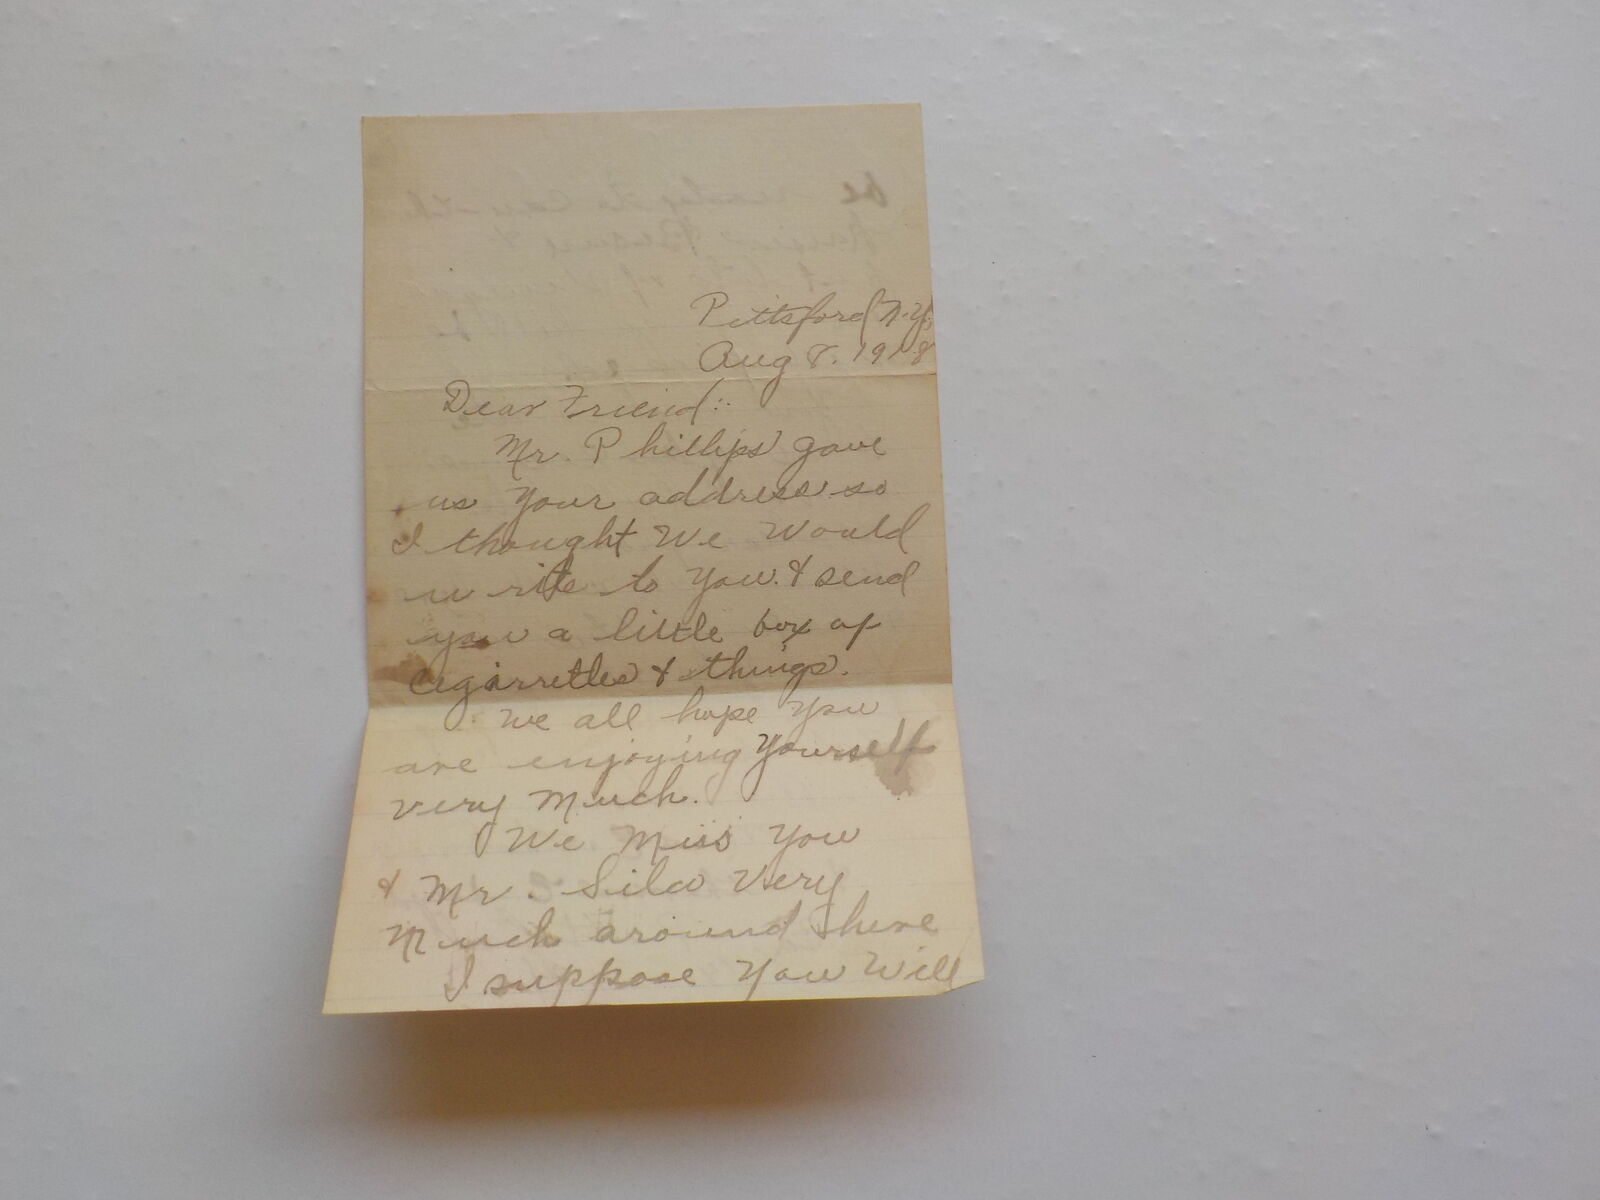 Pittsford N.Y.
Aug 8. 1918
Dear Friend::
Mr. Phillips gave
us your address so
I thought We Would
write to You. & send
you a little box of
Cigarrettes & things.
We all hope You
are enjoying Yourself
very Much.
We Miss You
& Mr. Silco Very
Much around here
I suppose You Will